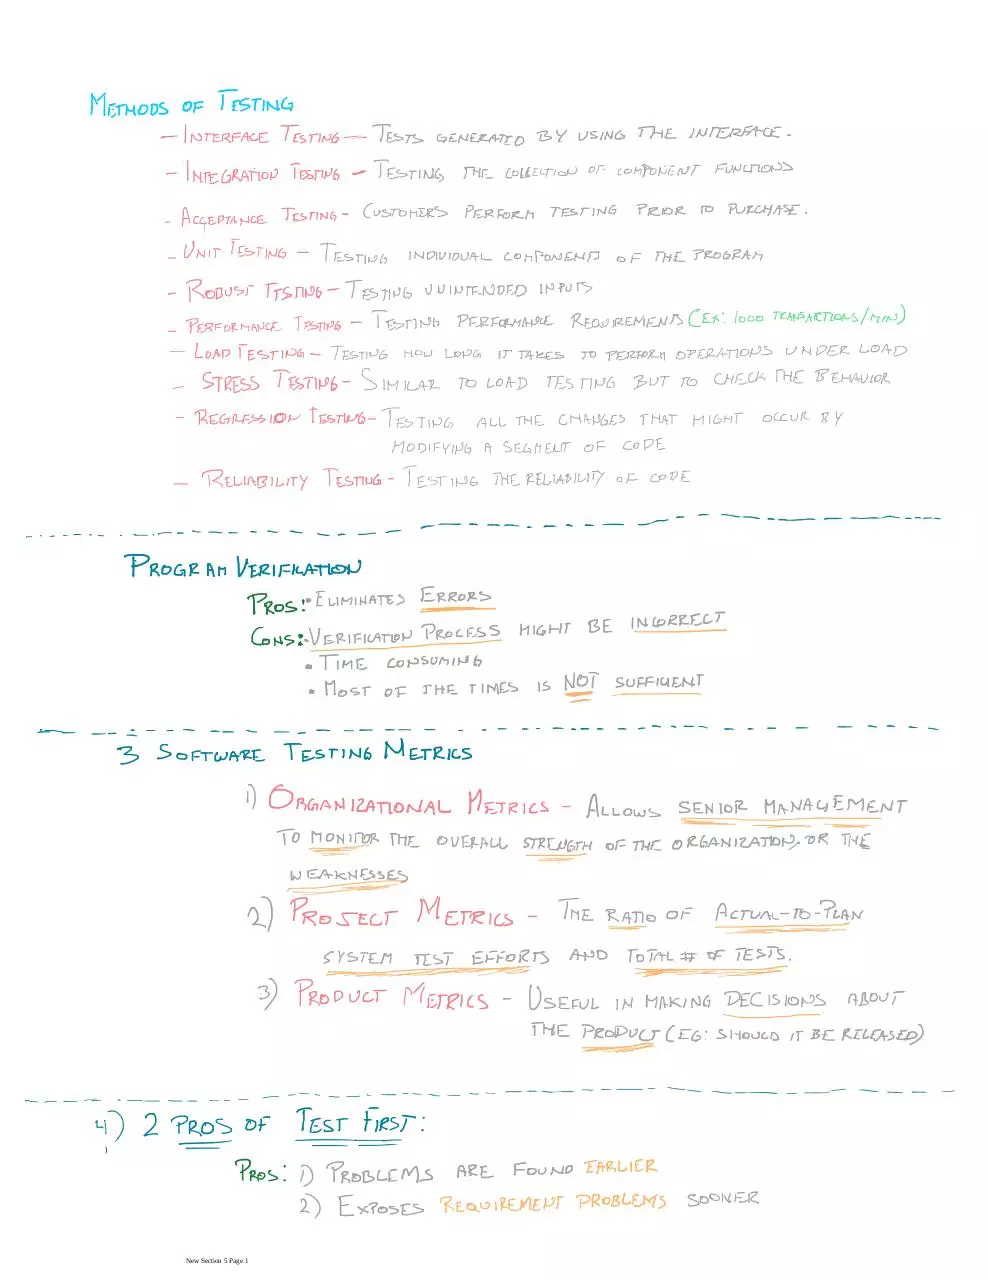 METHODS OF TESTING
- INTERFACE TESTING - TESTS GENERATED BY USING THE INTERFACE.
- INTEGRATION TESTING - TESTING THE COLLECTION OF COMPONENT FUNCTIONS
- ACCEPTANCE TESTING - CUSTOMERS PERFORM TESTING PRIOR TO PURCHASE.
- UNIT TESTING - TESTING INDIVIDUAL COMPONENTS OF THE PROGRAM
- ROBUST TESTING - TESTING UNINTENDED INPUTS
- PERFORMANCE TESTING - TESTING PERFORMANCE REQUIREMENTS (EX: 1000 TRANSACTIONS/MIN)
- LOAD TESTING - TESTING HOW LONG IT TAKES TO PERFORM OPERATIONS UNDER LOAD
- STRESS TESTING - SIMILAR TO LOAD TESTING BUT TO CHECK THE BEHAVIOR
- REGRESSION TESTING - TESTING ALL THE CHANGES THAT MIGHT OCCUR BY
MODIFYING A SEGMENT OF CODE
- RELIABILITY TESTING - TESTING THE RELIABILITY OF CODE
PROGRAM VERIFICATION
PROS: • ELIMINATES ERRORS
CONS: • VERIFICATION PROCESS MIGHT BE INCORRECT
• TIME CONSUMING
• MOST OF THE TIMES IS NOT SUFFICIENT
3 SOFTWARE TESTING METRICS
1) ORGANIZATIONAL METRICS - ALLOWS SENIOR MANAGEMENT
TO MONITOR THE OVERALL STRENGTH OF THE ORGANIZATION, OR THE
WEAKNESSES
2) PROJECT METRICS - THE RATIO OF ACTUAL-TO-PLAN
SYSTEM TEST EFFORTS AND TOTAL # OF TESTS.
3) PRODUCT METRICS - USEFUL IN MAKING DECISIONS ABOUT
THE PRODUCT (EG: SHOULD IT BE RELEASED)
4) 2 PROS OF TEST FIRST:
PROS: 1) PROBLEMS ARE FOUND EARLIER
2) EXPOSES REQUIREMENT PROBLEMS SOONER
New Section 5 Page 1